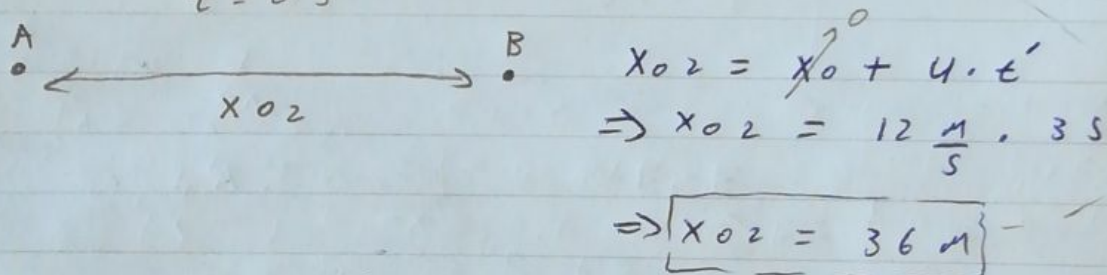 A B
X02 = X0 + U . t' 0
X02
=> X02 = 12 M/S . 3 S
=> X02 = 36 M